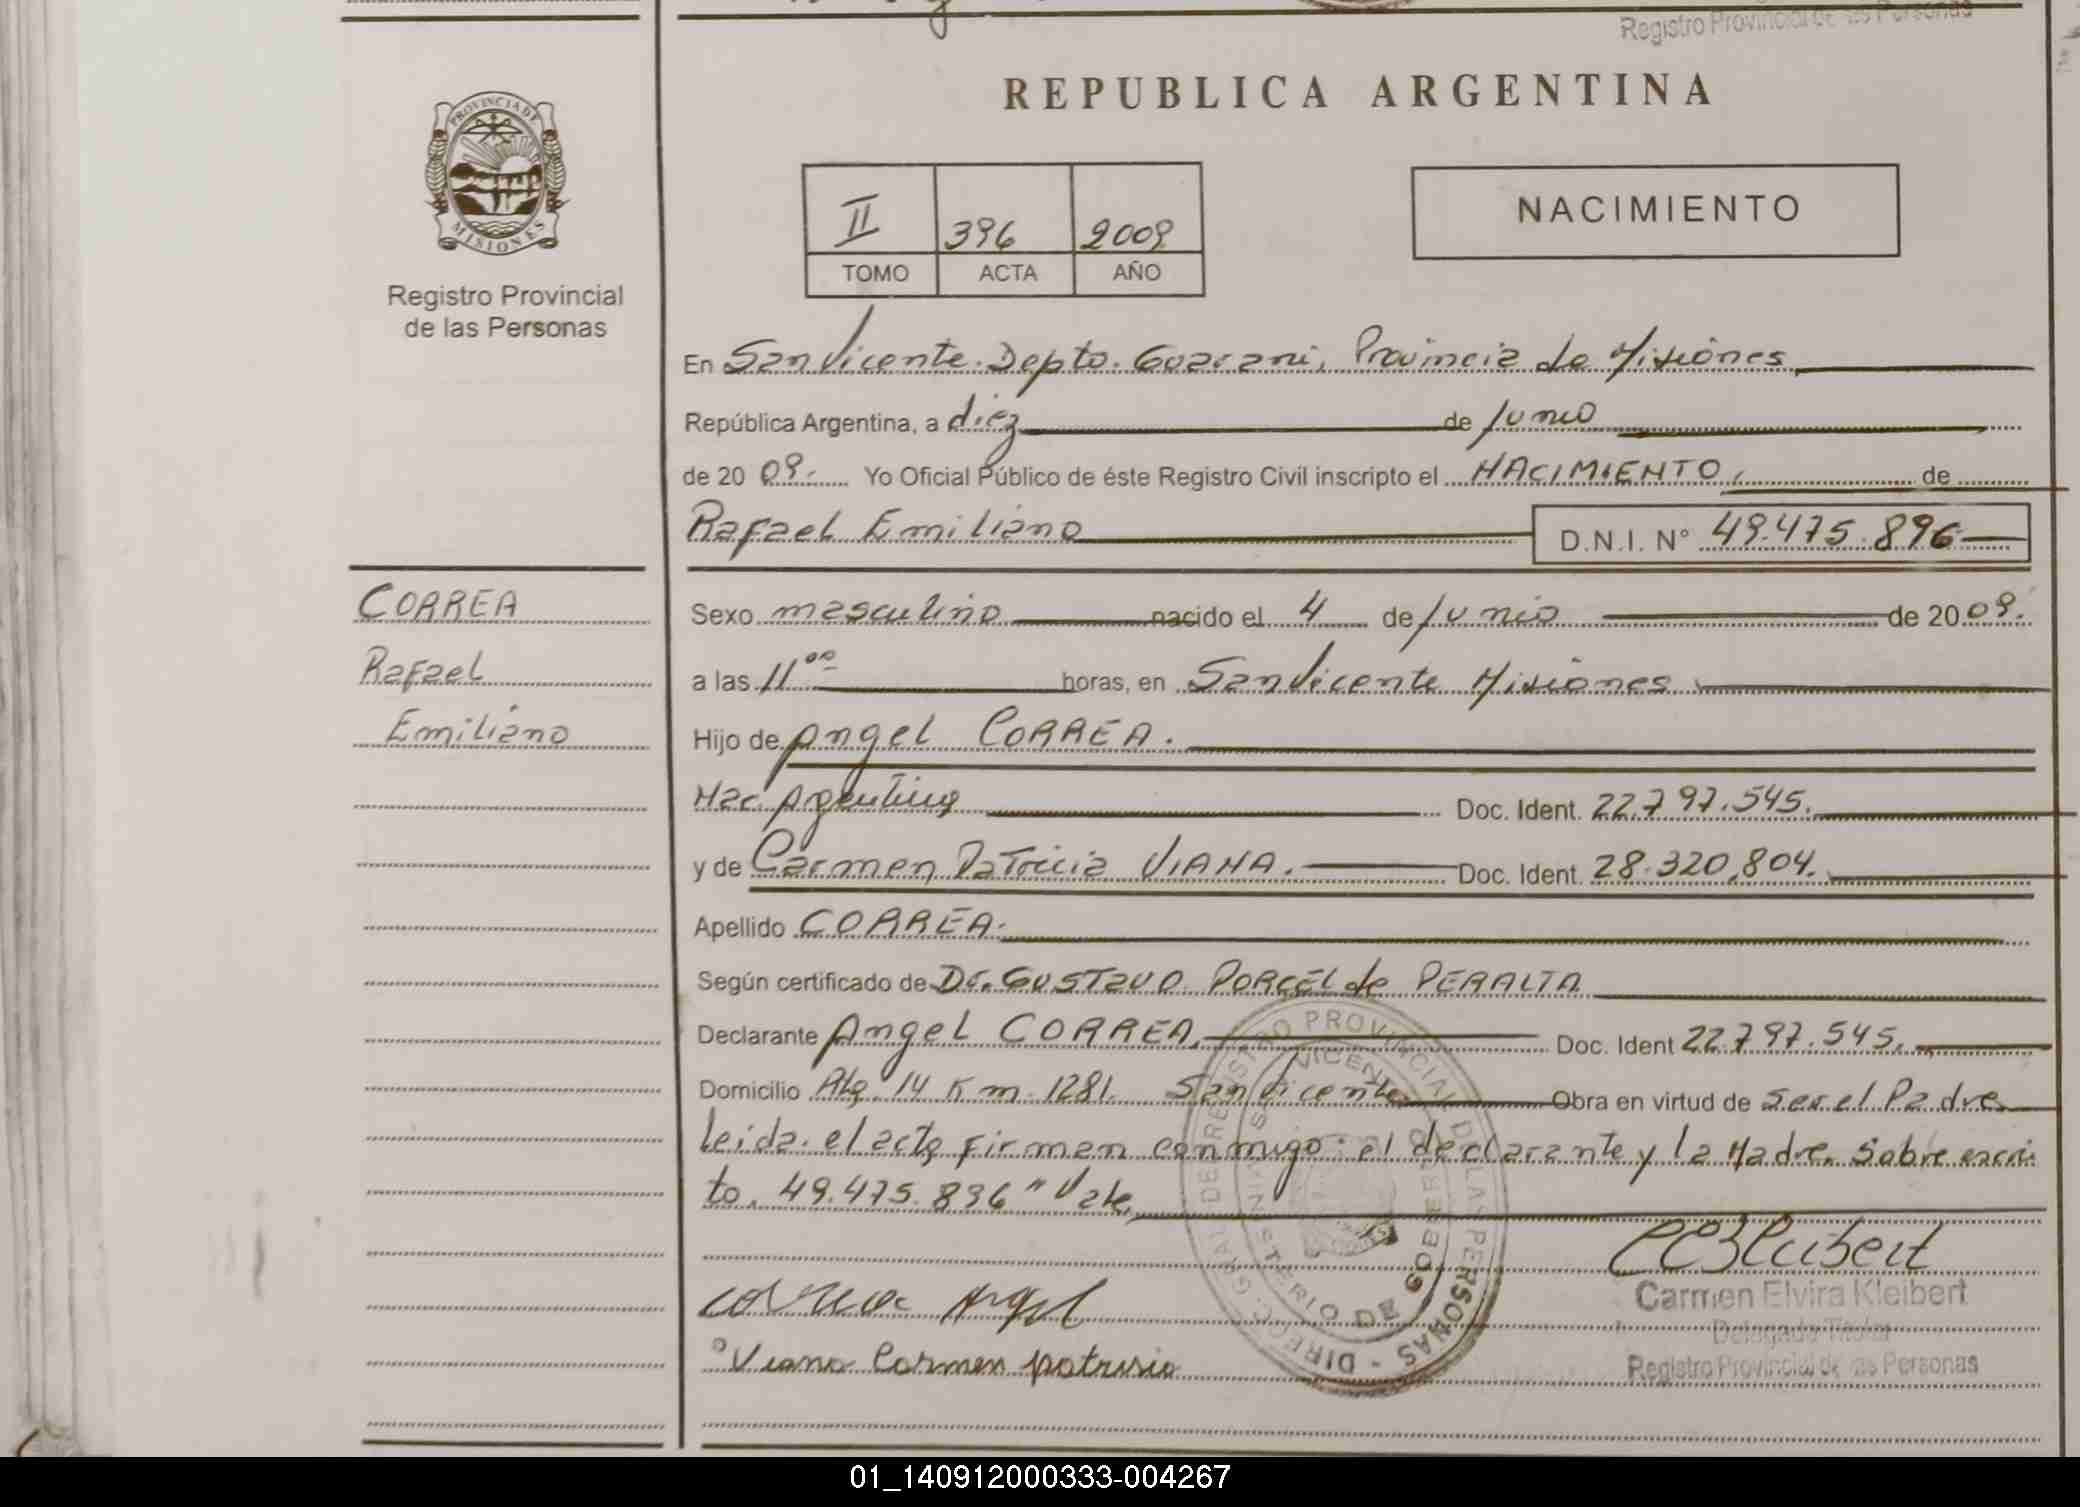 Registro Provincial de las Personas
REPUBLICA ARGENTINA
PROVINCIA DE
MISIONES
Registro Provincial
de las Personas
II 396 2009
TOMO ACTA AÑO
NACIMIENTO
En San Vicente. Depto. Guarani, Provincia de Misiones
República Argentina, a diez de Junio
de 2009. Yo Oficial Público de éste Registro Civil inscripto el NACIMIENTO, de
Rafael Emiliano D.N.I. N° 49.475.896
CORREA
Rafael
Emiliano
Sexo masculino nacido el 4 de Junio de 2009.
a las 11 00 horas, en San Vicente Misiones
Hijo de Angel CORREA.
Nac. Argentina Doc. Ident. 22.797.545.
y de Carmen Patricia VIANA. Doc. Ident. 28.320.804.
Apellido CORREA.
Según certificado de Dr. GUSTAVO PORCEL de PERALTA
Declarante Angel CORREA, Doc. Ident 22.797.545.
Domicilio Rta. 14 Km. 1281. San Vicente Obra en virtud de ser el Padre
leida el acta firman conmigo: el declarante y la Madre. Sobre escri
to. 49.475.896" Vale.
DIRECC. GRAL. DE REGISTRO PROVINCIAL DE LAS PERSONAS
S. VICENTE
MINISTERIO DE GOBIERNO
Correa Angel
Viana Carmen patrisia
Carmen Elvira Kleibert
Delegado Titular
Registro Provincial de las Personas
01_140912000333-004267